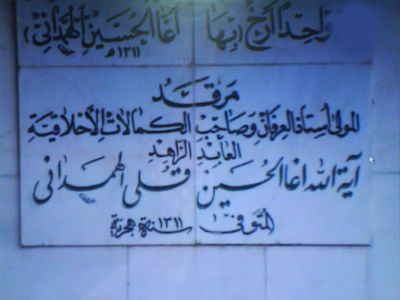 واحدًا أرخ (بها آغا الحسين الهمداني)
١٣١١هـ
مرقد
المولى أستاذ العرفان وصاحب الكمالات الأخلاقية
العابد الزاهد
آية الله آغا الحسين قلي الهمداني
المتوفى سنة ١٣١١ هجرية